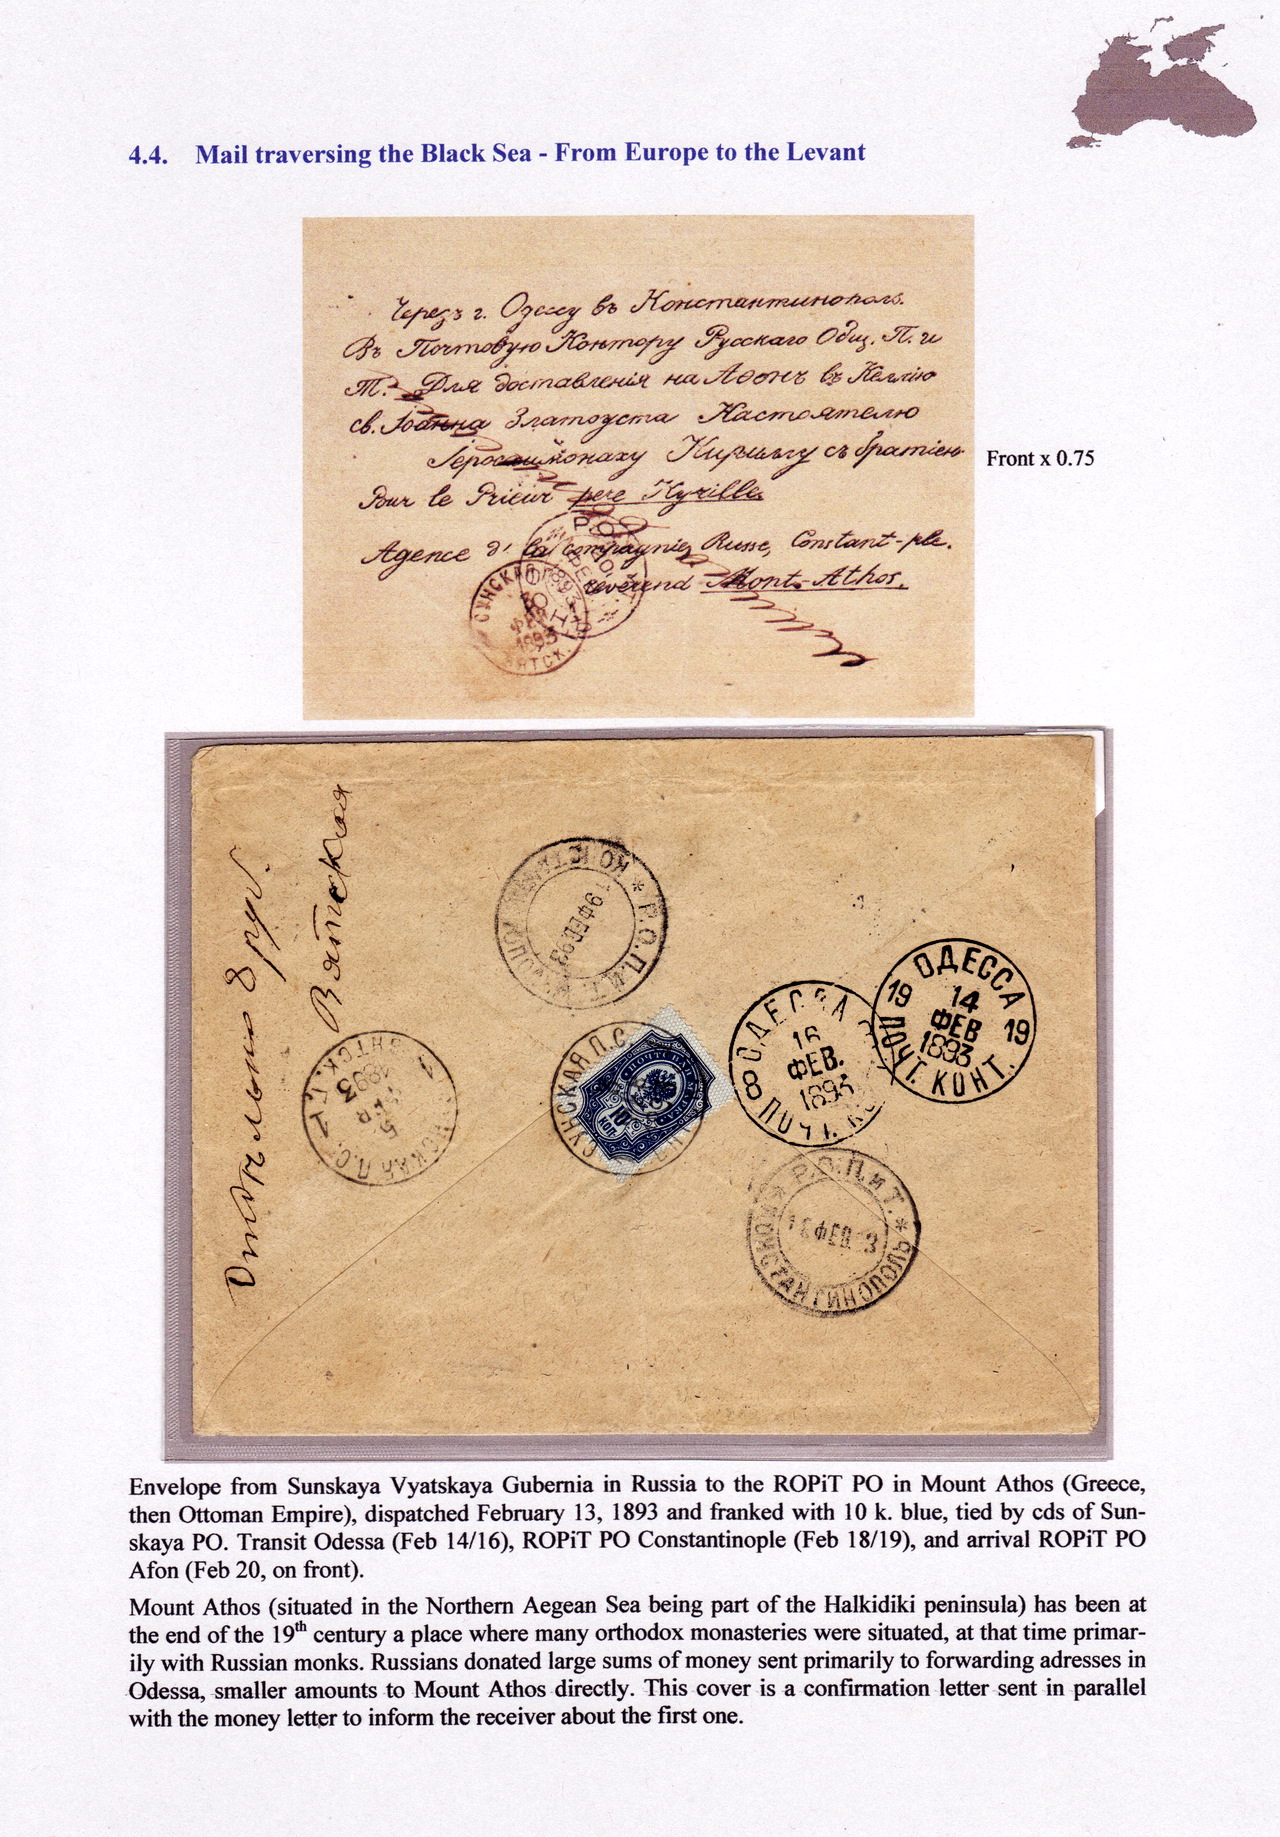 4.4. Mail traversing the Black Sea - From Europe to the Levant
Черезъ г. Одессу въ Константинополь.
Въ Почтовую Контору Русскаго Общ. П. и
Т. Для доставленія на Аѳонъ въ Келлію
св. Іоанна Златоуста Настоятелю
монаху Кириллу съ братіею
Front x 0.75
Pour le Prieur pere Kyrille
Agence d' la compagnie Russe, Constant-ple.
révérend Mont-Athos.
Р.О.
СУНСКАЯ
1893
ВЯТСК.
8 руб.
Вятская
КОНСТАНТИНОПОЛЬ * Р.О.П.и Т. *
19 ФЕВ 93
ОДЕССА
19 14 19
ФЕВ
1893
ПОЧТ. КОНТ.
ОДЕССА
16
ФЕВ.
1893
8 ПОЧТ. КО
СУНСКАЯ П.О.
ПОЧТОВАЯ МАРКА
10
КОП.
СКАЯ П.О. ВЯТСК. Г.
1893
Р.О.П.и Т. * КОНСТАНТИНОПОЛЬ
18 ФЕВ 3
Envelope from Sunskaya Vyatskaya Gubernia in Russia to the ROPiT PO in Mount Athos (Greece,
then Ottoman Empire), dispatched February 13, 1893 and franked with 10 k. blue, tied by cds of Sun-
skaya PO. Transit Odessa (Feb 14/16), ROPiT PO Constantinople (Feb 18/19), and arrival ROPiT PO
Afon (Feb 20, on front).
Mount Athos (situated in the Northern Aegean Sea being part of the Halkidiki peninsula) has been at
the end of the 19th century a place where many orthodox monasteries were situated, at that time primar-
ily with Russian monks. Russians donated large sums of money sent primarily to forwarding adresses in
Odessa, smaller amounts to Mount Athos directly. This cover is a confirmation letter sent in parallel
with the money letter to inform the receiver about the first one.